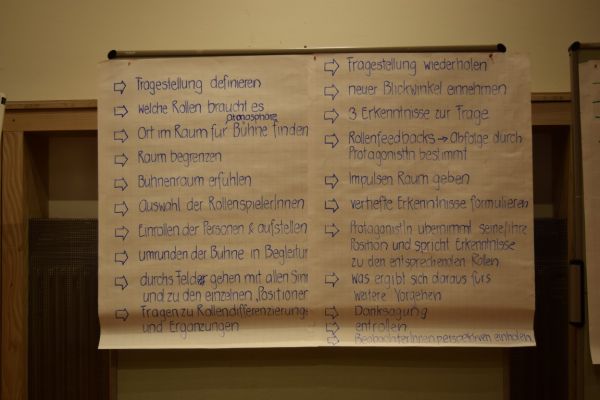 Fragestellung definieren
welche Rollen braucht es
Atmosphäre
Ort im Raum für Bühne finden
Raum begrenzen
Bühnenraum erfühlen
Auswahl der RollenspielerInnen
Einrollen der Personen & aufstellen
umrunden der Bühne in Begleitung
durchs Feld gehen mit allen Sinn
und zu den einzelnen Positionen
Fragen zu Rollendifferenzierung
und Ergänzungen
Fragestellung wiederholen
neuer Blickwinkel einnehmen
3 Erkenntnisse zur Frage
Rollenfeedbacks → Abfolge durch
ProtagonistIn bestimmt
Impulsen Raum geben
vertiefte Erkenntnisse formulieren
ProtagonistIn übernimmt seine/ihre
Position und spricht Erkenntnisse
zu den entsprechenden Rollen
was ergibt sich daraus fürs
weitere Vorgehen
Danksagung
entrollen
BeobachterInnenperspektiven einholen